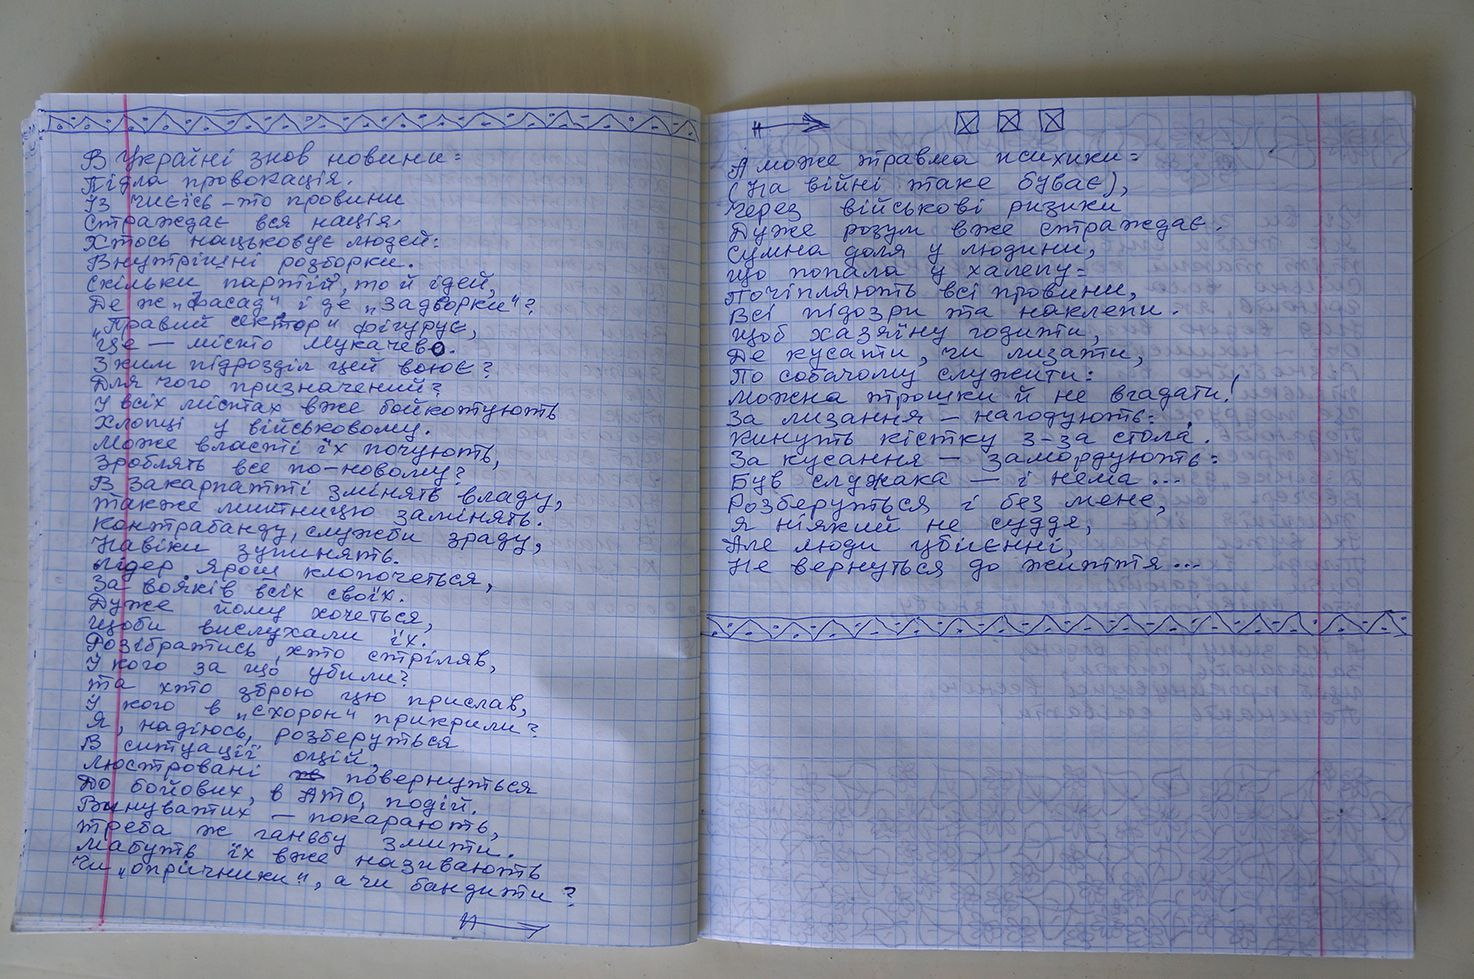 В Україні знов новини:
Підла провокація.
Із чиєїсь-то провини
Страждає вся нація.
Хтось нацьковує людей:
Внутрішні розборки.
Скільки партій, то й ідей,
Де ж „фасад" і де „задворки"?
„Правий сектор" фігурує,
Це — місто Мукачево.
З ким підрозділ цей воює?
Для чого призначений?
У всіх містах вже бойкотують
Хлопці у військовому.
Може власті їх почують,
Зроблять все по-новому?
В Закарпатті змінять владу,
також митницю замінять.
Контрабанду, служби зраду,
Навіки зупинять.
Лідер Ярош клопочеться,
За вояків всіх своїх.
Дуже йому хочеться,
Щоби вислухали їх.
Розібратись, хто стріляв,
І кого за що убили?
Та хто зброю цю прислав,
І кого в „схорон" прикрили?
Я, надіюсь, розберуться
В ситуації оцій,
Люстровані повернуться
До бойових, в АТО, подій.
Винуватих — покарають,
Треба ж ганьбу змити.
Мабуть їх вже називають
Чи „опричники", а чи бандити?
Н
Н
А може травма психики:
(На війні таке буває),
Через військові ризики
Дуже розум вже страждає.
Сумна доля у людини,
Що попала у халепу:
Почіпляють всі провини,
Всі підозри та наклепи.
Щоб хазяїну годити,
Де кусати, чи лизати,
По собачому служити:
Можна трошки й не вгадати!
За лизання — нагодують:
Кинуть кістку з-за стола.
За кусання — замордують:
Був служака — і нема...
Розберуться і без мене,
Я ніякий не суддя,
Але люди убієнні,
Не вернуться до життя...